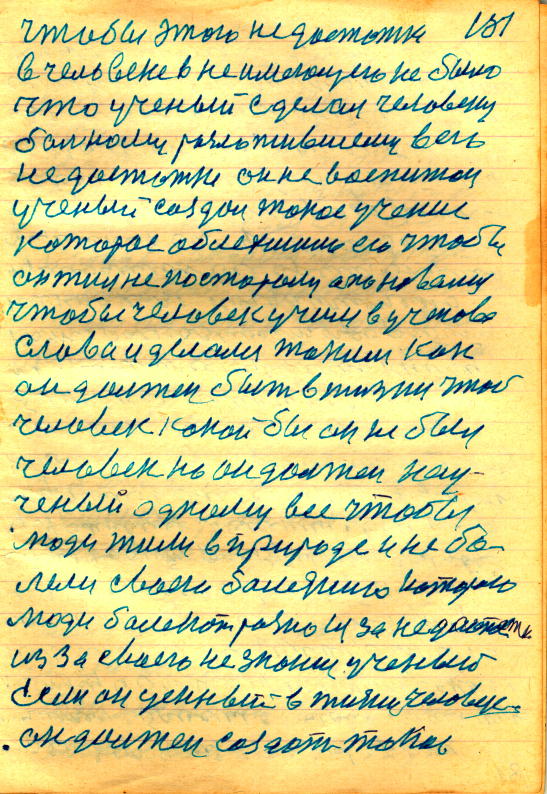 чтобы этого недостатка 181
в человеке в неимеющего не было
что ученый сделал человеку
больному разложившему весь
недостатки он не воспитал
ученый создал такое учение
которое облехшило его чтобы
он жил не постарому а по новаму
чтобы человек учил в ученова
слова и делали таким как
он должен быть в жизни чтоб
человек какой бы он не был
человек но он должен нау-
ченый одному все чтобы
люди жили в природе и не бо-
лели своей болезнию которою
люди болеют разно из за недостатка
из за своего не знании ученый
если он ценный в жизни человек
он должен создать такое